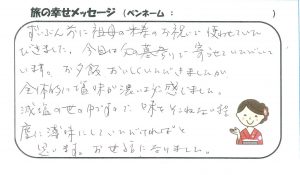 旅の幸せメッセージ （ペンネーム： ）
ずいぶん前に祖母の米寿のお祝いに使わせていた
だきました。今回は父の墓参りで寄せていただいて
います。お夕飯おいしくいただきましたが
全体的に塩味が濃いように感じました。
減塩の世の中ですので、味をそこねない程
度に薄味にしていただければと
思います。お世話になりました。